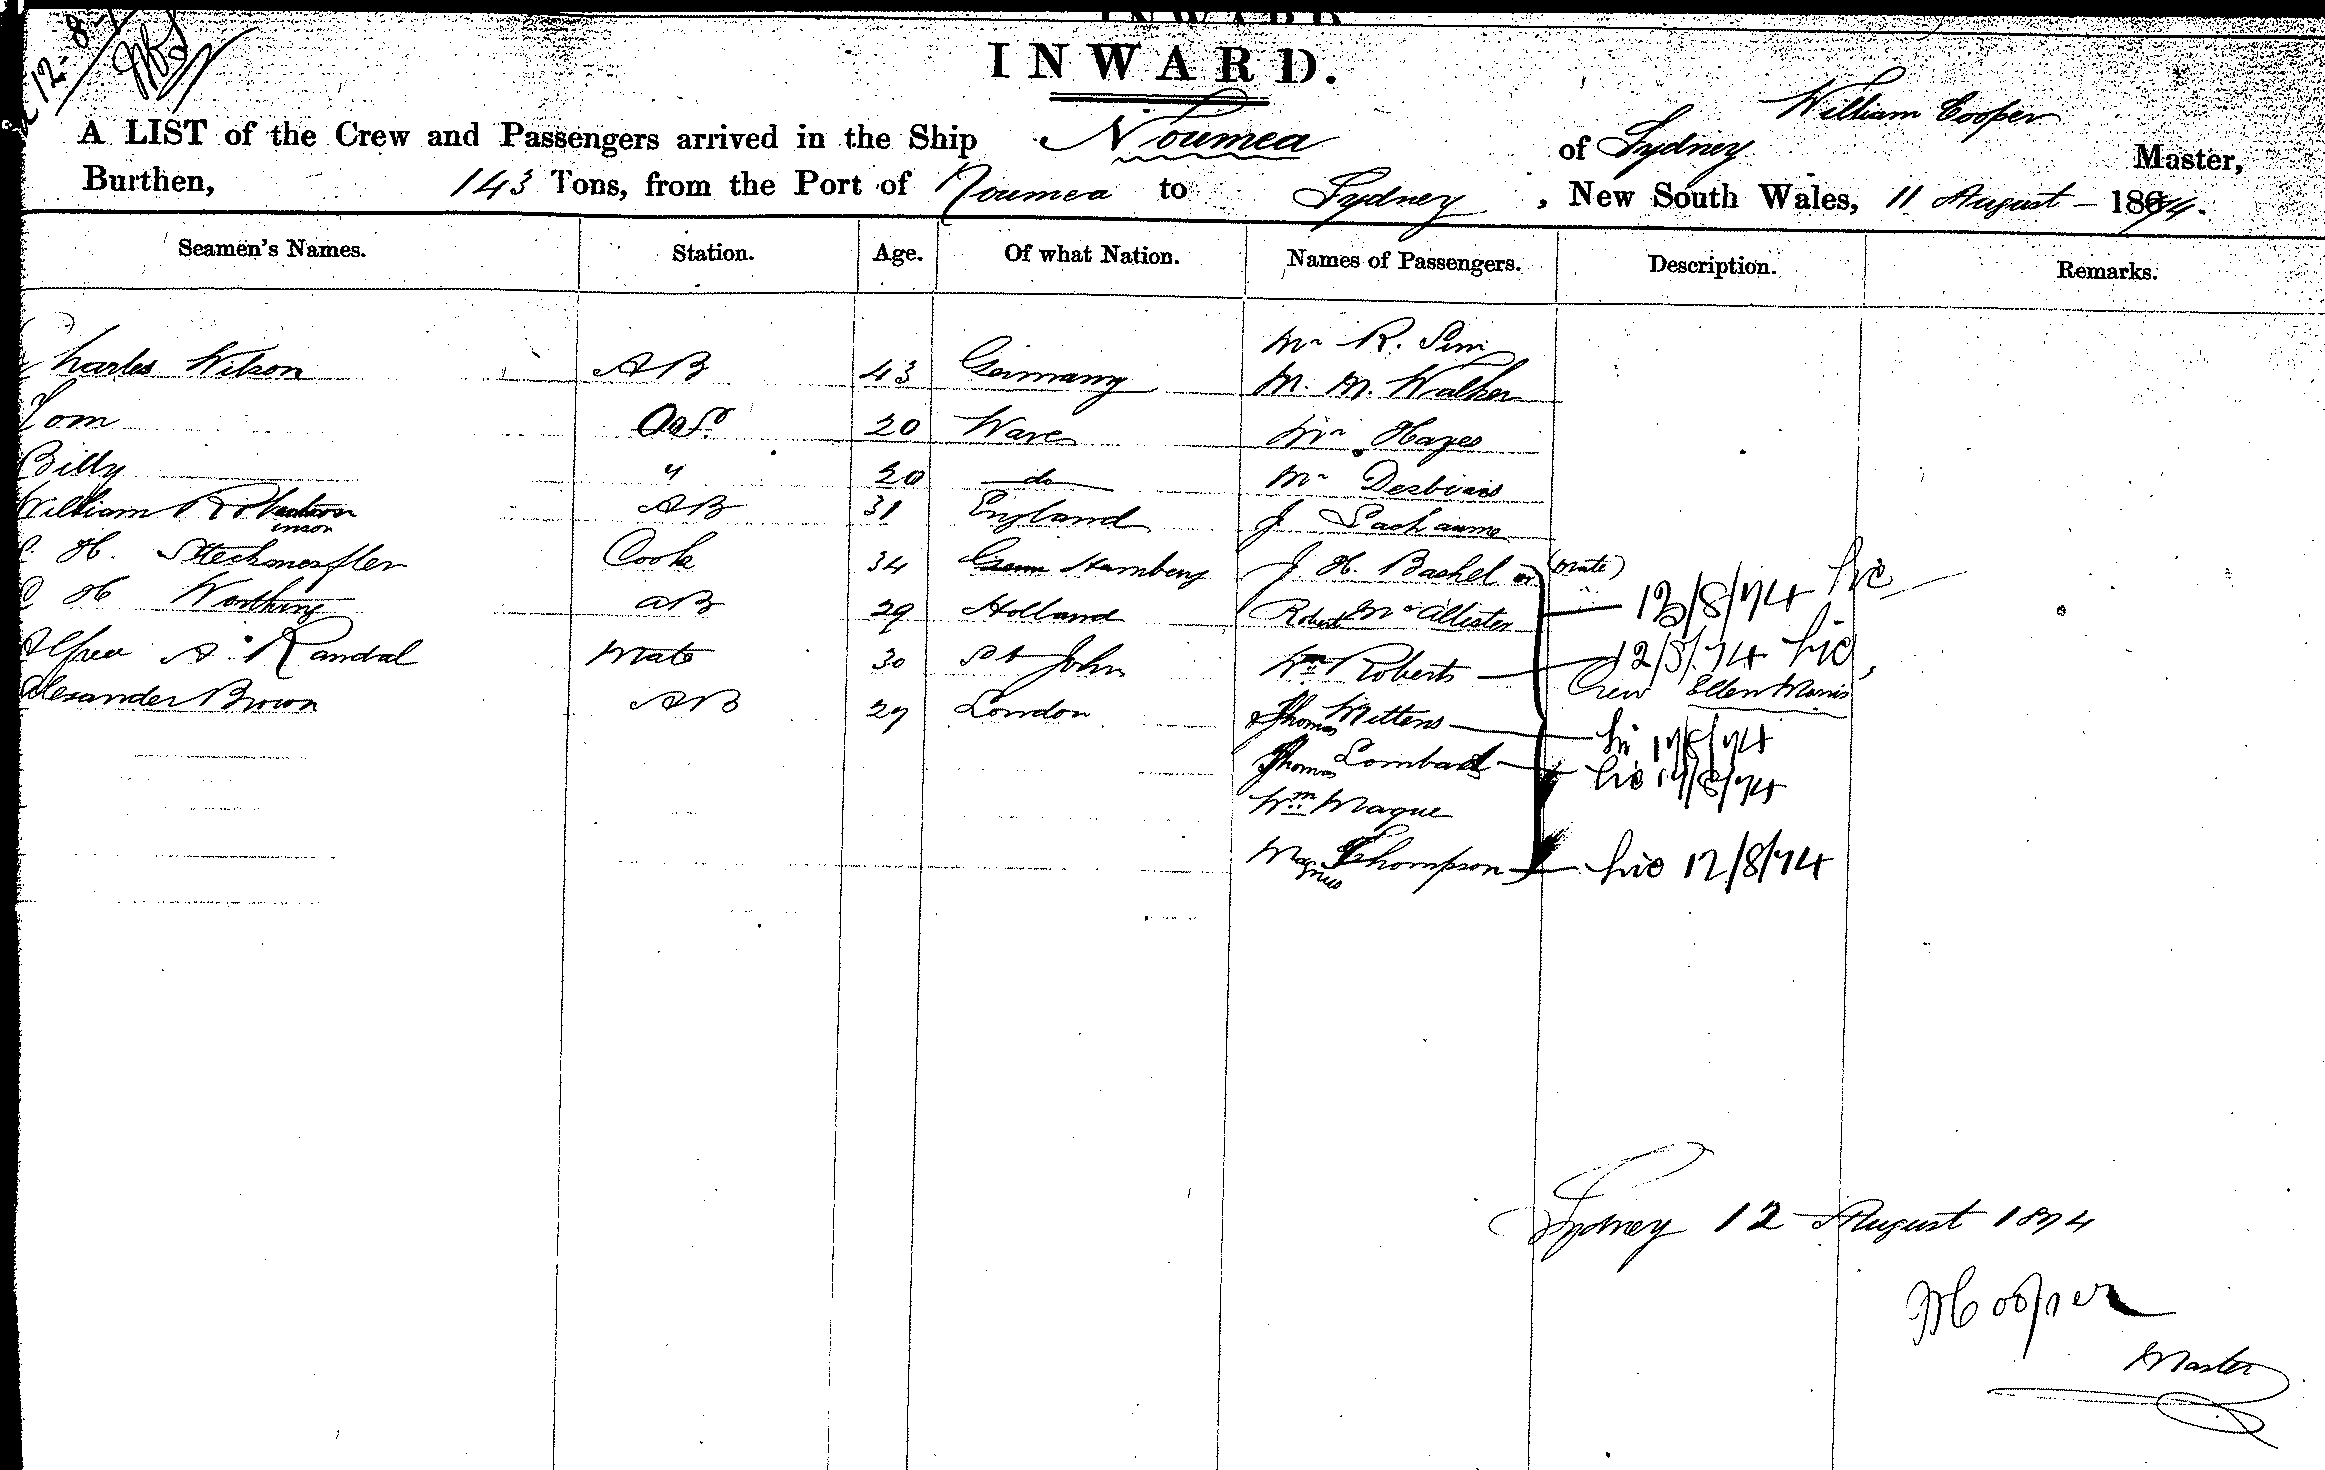 INWARD.
William Cooper
A LIST of the Crew and Passengers arrived in the Ship Noumea of Sydney Master,
Burthen, 143 Tons, from the Port of Noumea to Sydney, New South Wales, 11 August - 1874.
Seamen's Names. Station. Age. Of what Nation. Names of Passengers. Description. Remarks.
Mr R. Sim
Charles Wilson AB 43 Germany M. M. Walker
Tom 20 Mr Hayes
Billy " 20 do Mr
William Robinson AB 31 England J Lachaume
C. H. Cook 34 Hamburg J. H. Bachel (Mate)
C H Worthing AB 29 Holland Robert McAllister 12/8/74
Alfred A. Randal Mate 30 St John Wm Roberts 12/8/74
Crew Ellen Morris
Alexander Brown AB 27 London Thomas Mittens 17/8/74
Thomas Lombard 17/8/74
Wm Mague
Magnus Thompson 12/8/74
Sydney 12 August 1874
WCooper
Master